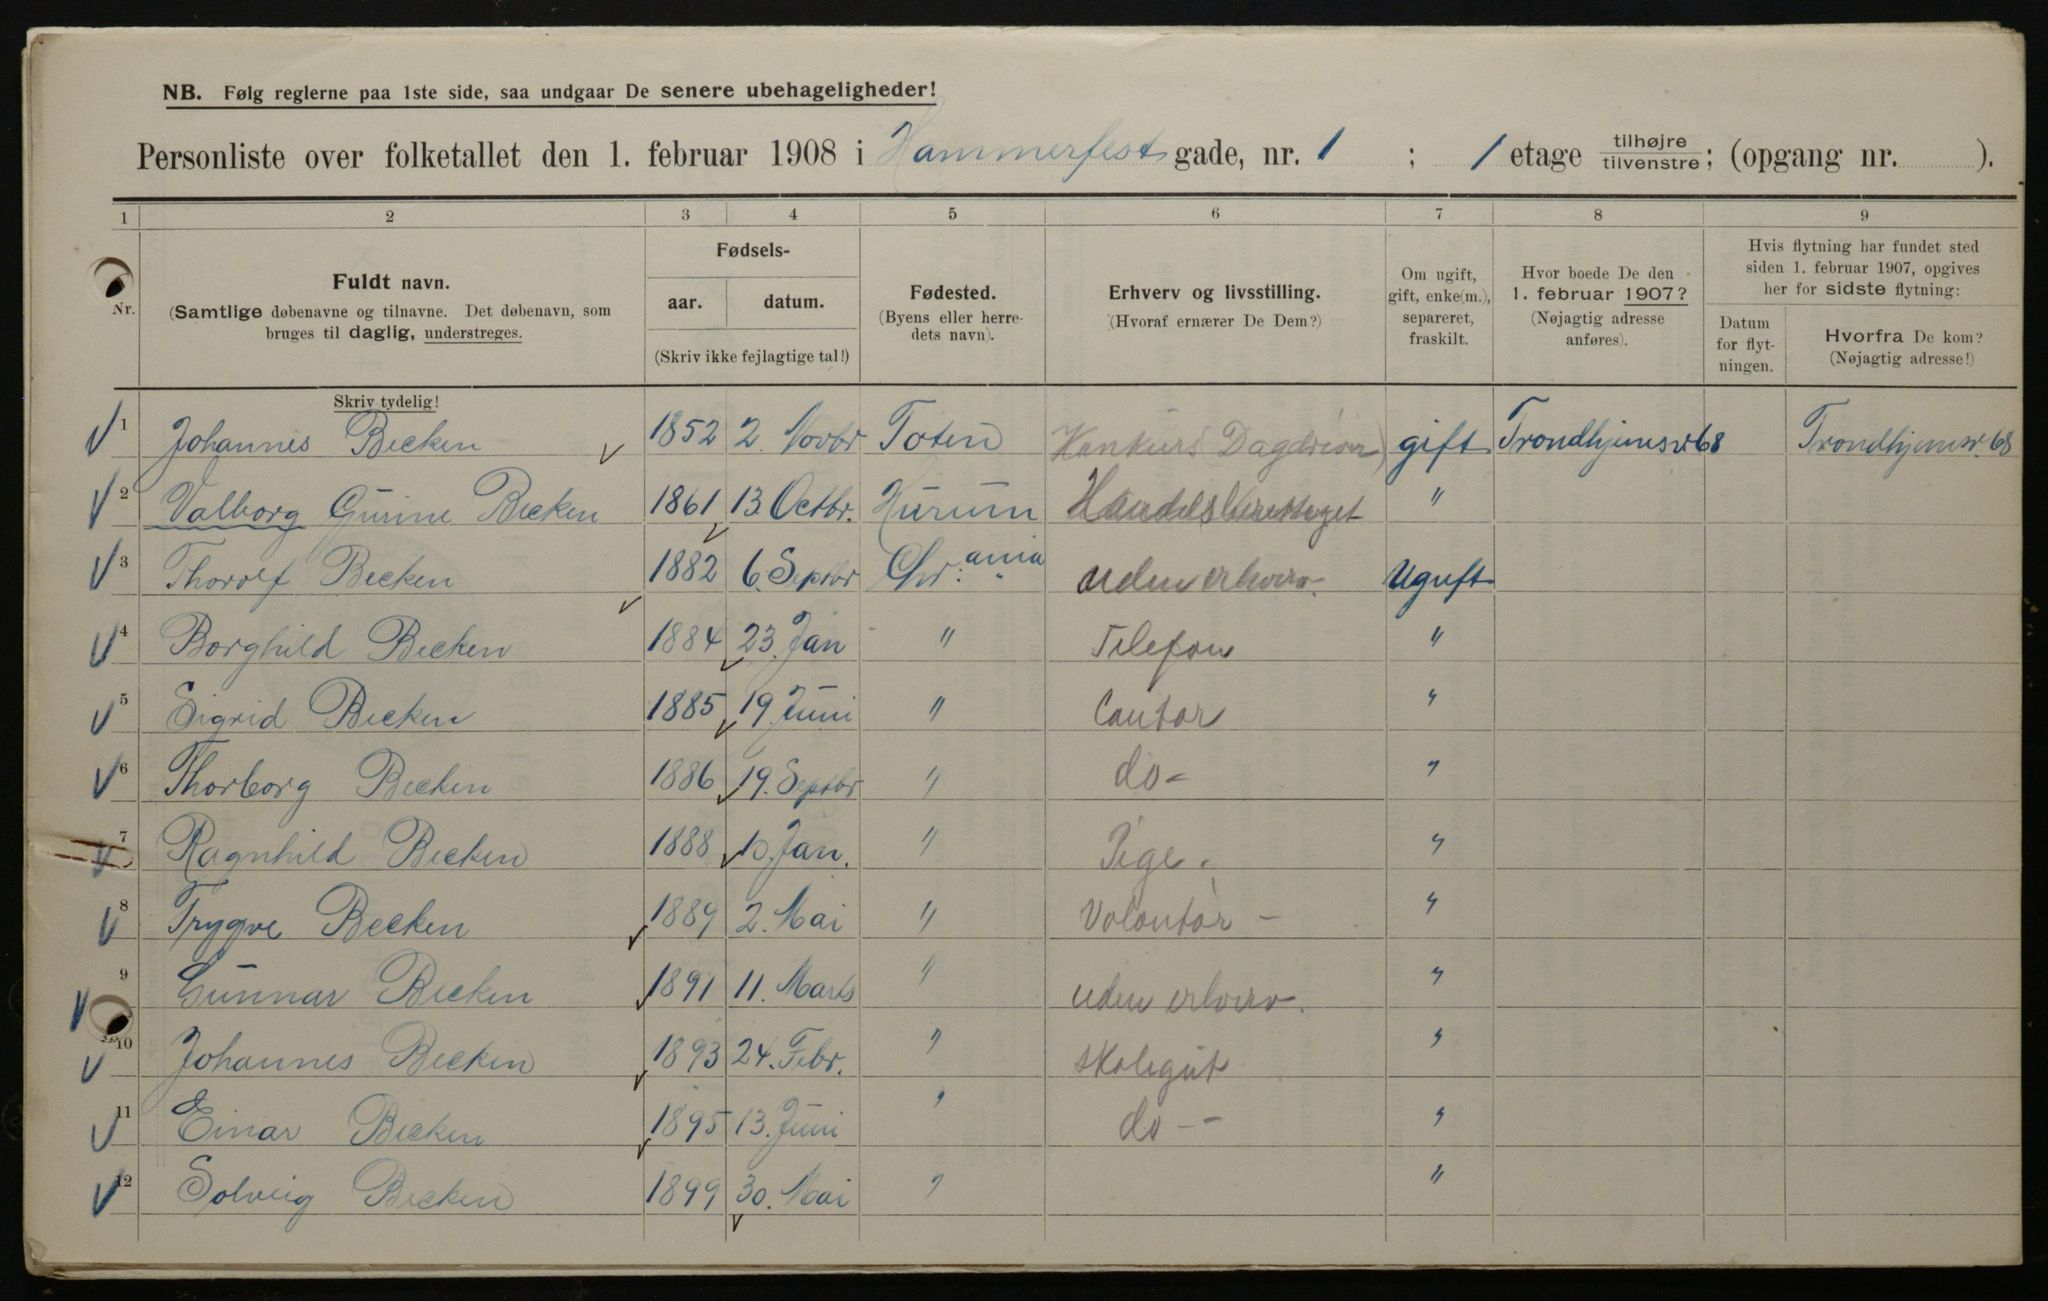 NB. Følg reglerne paa 1ste side, saa undgaar De senere ubehageligheder!
Personliste over folketallet den 1. februar 1908 i Hammerfest gade, nr. 1 ; 1 etage tilhøjre tilvenstre; (opgang nr. ).
1 2 3 4 5 6 7 8 9
Nr.
Fuldt navn.
(Samtlige døbenavne og tilnavne. Det døbenavn, som
bruges til daglig, understreges.
Fødsels-
aar. datum.
(Skriv ikke fejlagtige tal!)
Fødested.
(Byens eller herre-
dets navn).
Erhverv og livsstilling.
(Hvoraf ernærer De Dem?)
Om ugift,
gift, enke(m.),
separeret,
fraskilt.
Hvor boede De den
1. februar 1907?
(Nøjagtig adresse
anføres).
Hvis flytning har fundet sted
siden 1. februar 1907, opgives
her for sidste flytning:
Datum
for flyt-
ningen.
Hvorfra De kom?
(Nøjagtig adresse!)
Skriv tydelig!
1 Johannes Becken 1852 2. Novbr Toten gift Trondhjemsv 68 Trondhjemsv. 68
2 Valborg Gurine Becken 1861 13. Octbr. Hurum "
3 Thorolf Becken 1882 6. Septbr Chr.ania uden erhverv. Ugift
4 Borghild Becken 1884 23. Jan " Telefon "
5 Sigrid Becken 1885 19. Juni " Contor "
6 Thorborg Becken 1886 19. Septbr " do - "
7 Ragnhild Becken 1888 10. Jan. " Pige. "
8 Trygve Becken 1889 2. Mai " Volontør - "
9 Gunnar Becken 1891 11. Marts " uden erhverv. "
10 Johannes Becken 1893 24. Febr. " skolegut "
11 Einar Becken 1895 13. Juni " do - - "
12 Solveig Becken 1899 30. Mai " "